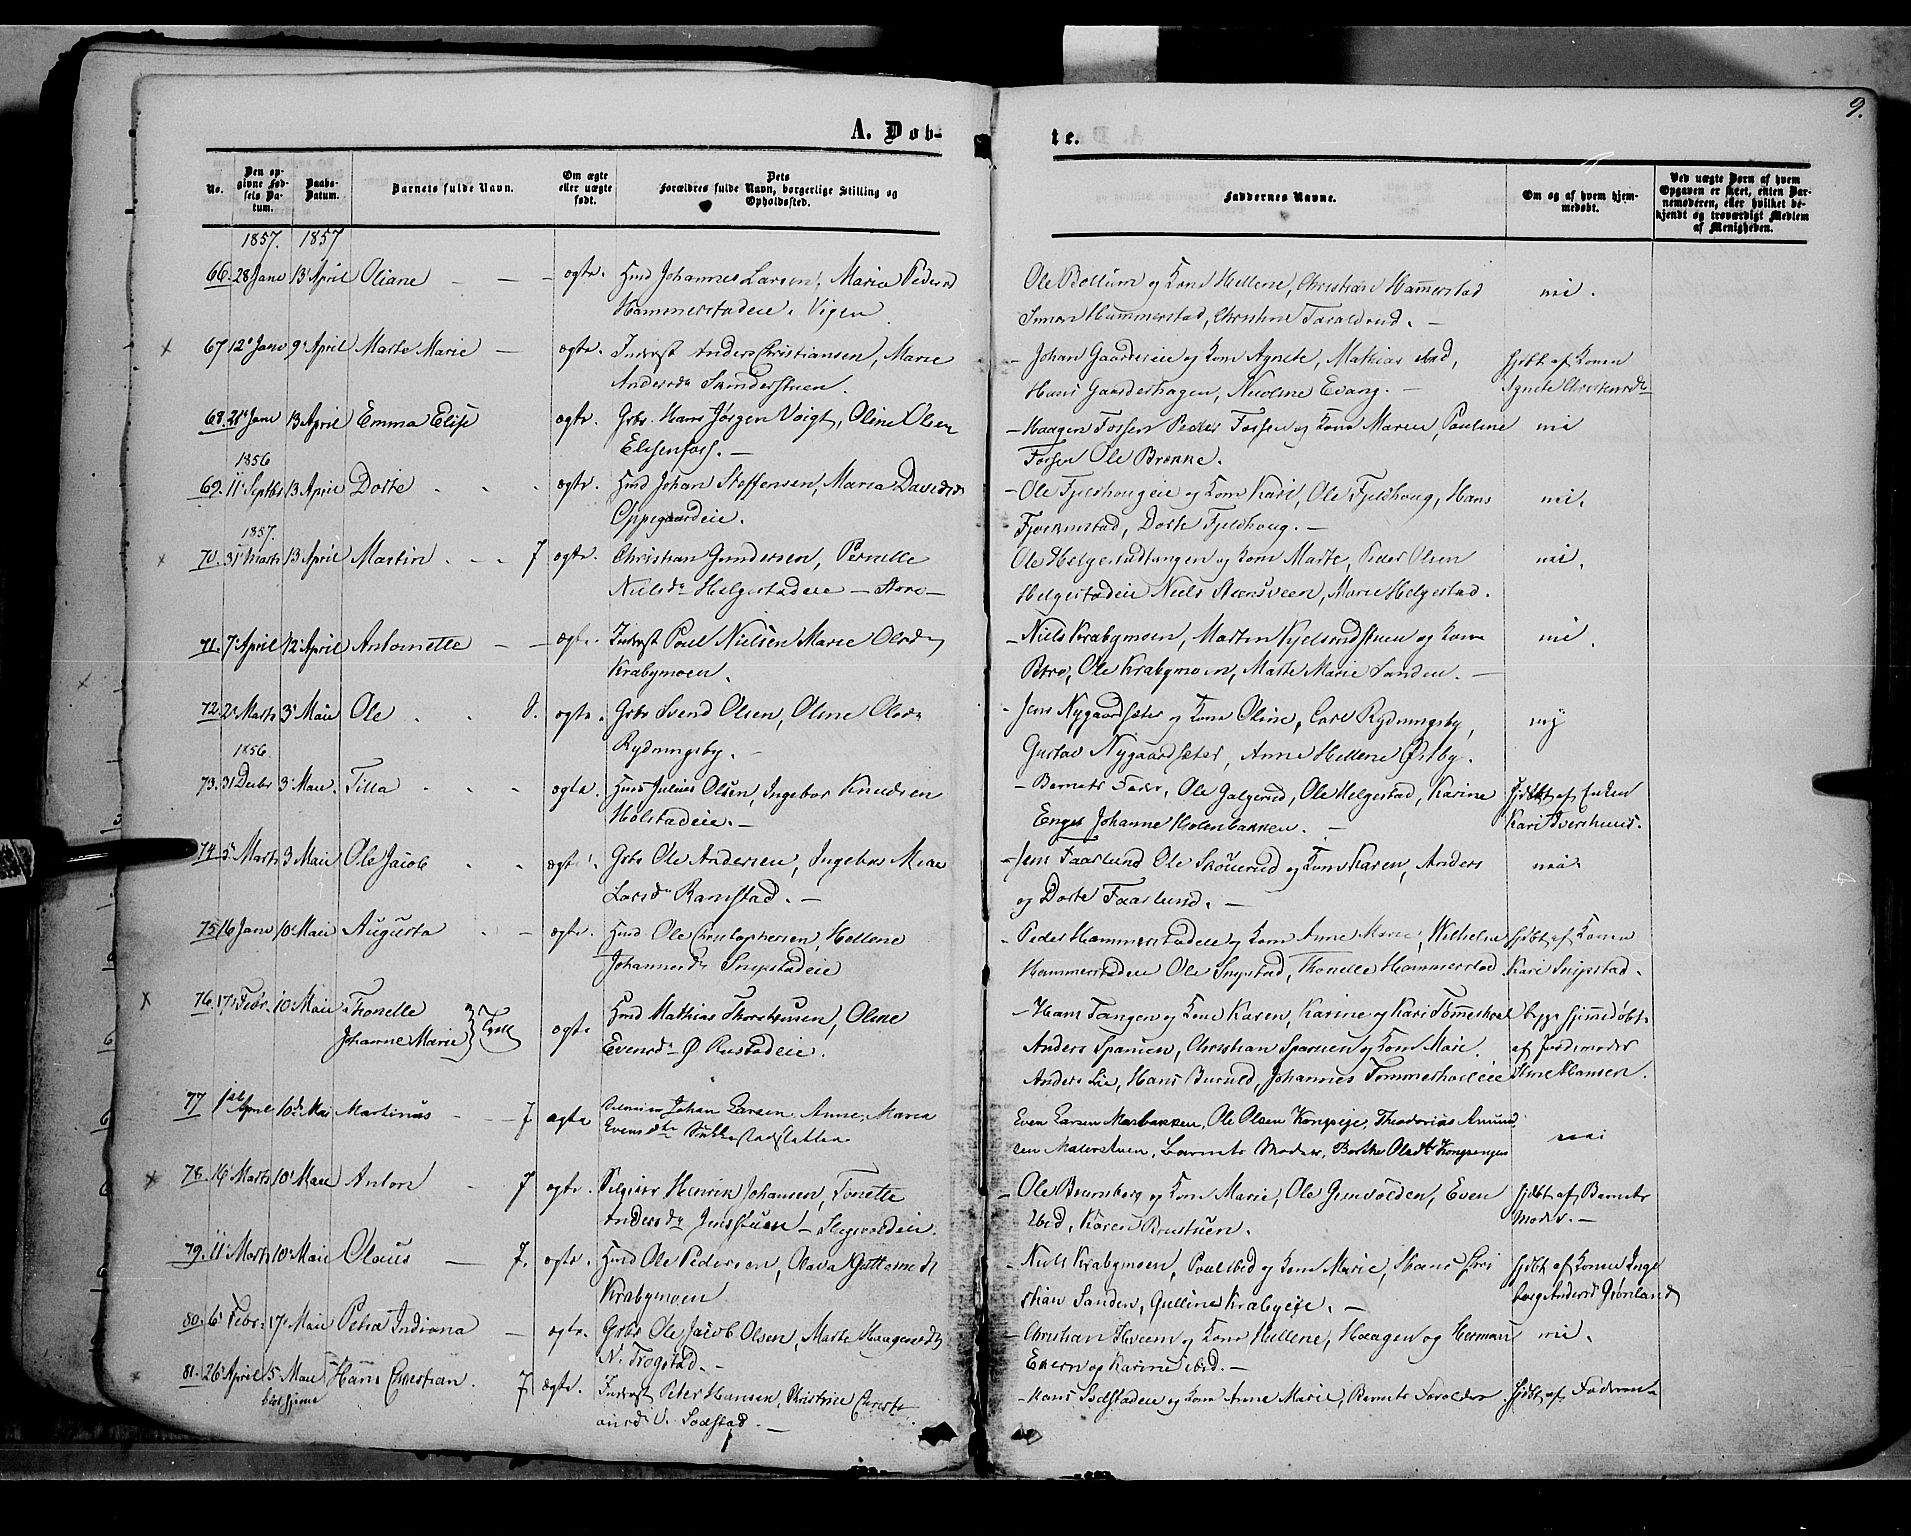 9.
A. Døb-
te.
No.
Den op-
givne Fød-
sels Da-
tum.
Daabs-
Datum.
Barnets fulde Navn.
Om ægte
eller uægte
født.
Dets
Forældres fulde Navn, borgerlige Stilling og
Opholdssted.
Faddernes Navne.
Om og af hvem hjem-
medøbt.
Ved uægte Børn af hvem
Opgaven er skeet, enten Bar-
nemoderen, eller hvilket be-
kjendt og troværdigt Medlem
af Menigheden.
1857. 1857
66. 28 Janr 13 April Oliane — — ogte. Hmd Johannes Larsen, Maria Pedersd
Hammerstadeie. Vigen
Ole Bollum og Kone Hellene, Christian Hammerstad
Simen Hammerstad, Christine Faraldrud. —
nei.
67 12 Janr 9 April Marte Marie — ogte. Inderst Anders Christiansen, Marie
Andersdr Sanderstuen.
- Johan Gaardereie og Kone Agnete, Mathias ibid,
Hans Gaarderhagen, Nicoline Evang. —
hjdbt af Konen
Agnete Christensdr
68. 21 Janr 13 April Emma Elise ogte. Grbr. Hans Jørgen Voigt, Oline Olsen
Elisenfoss. —
- Haagen Fossen Peder Fossen og Kone Maren, Pauline
Fossen Ole Brenne.
nei
1856
69. 11 Septbr 13 April Dorte ogte. Hmd Johan Steffensen, Maria Davidsdr
Oppegaardeie.
- Ole Fjeldhougeie og Kone Kari, Ole Fjeldhoug, Hans
Fjeermstad, Dorte Fjeldhoug. —
nei.
1857.
70. 31 Marts 13 April Martin 7 ogte. Christian Gundersen, Pernille
Nielsdr Helgestadeie —
Ole Helgestadtangen og Kone Marte, Peder Olsen
Helgestadeie Niels Aarsveen, Marie Helgestad.
nei.
71. 7 April 12 April Antonette — — ogte. Inderst Poul Nielsen Marie Olsdr
Krabymoen.
- Niels Krabymoen, Martin Kjelsrudstuen og Kone
Berte, Ole Krabymoen, Marte Marie Sanden. —
nei.
72. 2 Marts 3 Mai Ole ogte. Grbr Svend Olsen, Oline Olsdr
Rydningsby. —
- Jens Nygaardsæter og Kone Oline, Carl Rydningsby,
Gustav Nygaardsæter, Anne Hellene Ørsby.
nei
1856.
73. 31 Decbr 3 Mai. Tilla ogte. Hmd Julius Olsen, Ingebor Knudsen
Holstadeie. —
- Barnets Fader, Ole Galgerud, Ole Helgestad, Karine
Enger Johanne Holenbakken. —
hjdbt af Enken
Kari Iverslund.
74 5 Marts 3 Mai Ole Jacob ogte. Grbr Ole Andersen, Ingebor Marie
Larsdr Ramstad. —
- Jens Faarlund Ole Skouerud og Kone Karen, Anders
og Dorte Faarlund. —
nei
75 16 Janr 10 Mai Augusta ogte. Hmd Ole Christophersen, Hellene
Johannesdr Snipstadeie
- Peder Hammerstadeie og Kone Anne Marie, Wilhelm
Hammerstadeie Ole Snipstad, Thonette Hammerstad
hjdbt af Konen
Kari Snipstad.
76. 17 Febr. 10 Mai Thonelle
Johanne Marie } Tvill ogte Hmd Mathias Thorstensen, Oline
Evensdr Ø Rustadeie.
- Hans Tangen og Kone Karen, Karine og Kari Tømmeshol
Anders Spanien, Christian Spanien og Kone Marie.
Anders Lie, Hans Burud, Johannes Tømmesholeie
begge hjemmedøbt
af Jordemoder
Hansen.
77 1ste April 10de Mai Martinus — — 7 ægte Johan Larsen, Anne Maria
Evensdtr
Even Larsen Marbakken, Ole Olsen Kongseie, Theodorius Amund
sen Malerstuen, Barnets Moder, Berthe Olsdtr Kongsengen
nei
78. 16 Marts 10 Mai Anton — 7 ogte. Selveier Henrik Johansen, Tonette
Andersdr Jensstuen —
- Ole Bramberg og Kone Marie, Ole Grinvolden, Even
ibid, Karen Brustuen.
hjdbt af Barnets
Moder. —
79. 11 Marts 10 Mai Olaus — 7. ogte. Hmd Ole Pedersen, Olava Guttormsdr
Krabymoen
- Niels Krabymoen, Poul ibid og Kone Marie, Hans Chri
stian Sanden, Gulline Krabyeie. —
hjdbt af Konen Inge
borg Andersd Grønland
80. 6 Febr. 17 Mai Petra Indiana — ogte. Grbr Ole Jacob Olsen, Marte Haagensdr
N. Frogstad. —
- Christian Hveem og Kone Hellene, Haagen og Herman
Evern og Karine ibid. —
nei.
81. 26 April 5 Mai Hans Christian. 7. ægte. Inderst Peter Hansen, Christine Christi
ansdr V. Sodstad. —
- Hans Sodstadeie og Kone Anne Marie, Barnets Forældre
hjdbt af Faderen